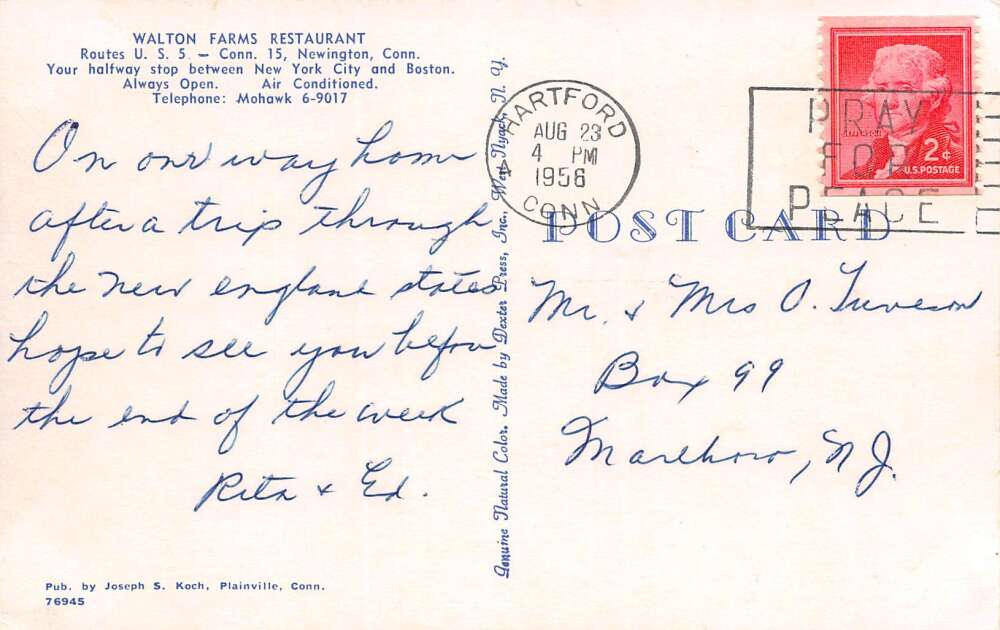 WALTON FARMS RESTAURANT
Routes U. S. 5 — Conn. 15, Newington, Conn.
Your halfway stop between New York City and Boston.
Always Open. Air Conditioned.
Telephone: Mohawk 6-9017
On our way home
after a trip through
the new england states
hope to see you before
the end of the week
Rita & Ed.
Pub. by Joseph S. Koch, Plainville, Conn.
76945
Genuine Natural Color. Made by Dexter Press, Inc., West Nyack, N. Y.
HARTFORD
AUG 23
4 PM
1956
CONN
PRAY
FOR
PEACE
JEFFERSON
2¢
U.S. POSTAGE
POST CARD
Mr. & Mrs O. Tuveson
Box 99
Marlboro, N J.